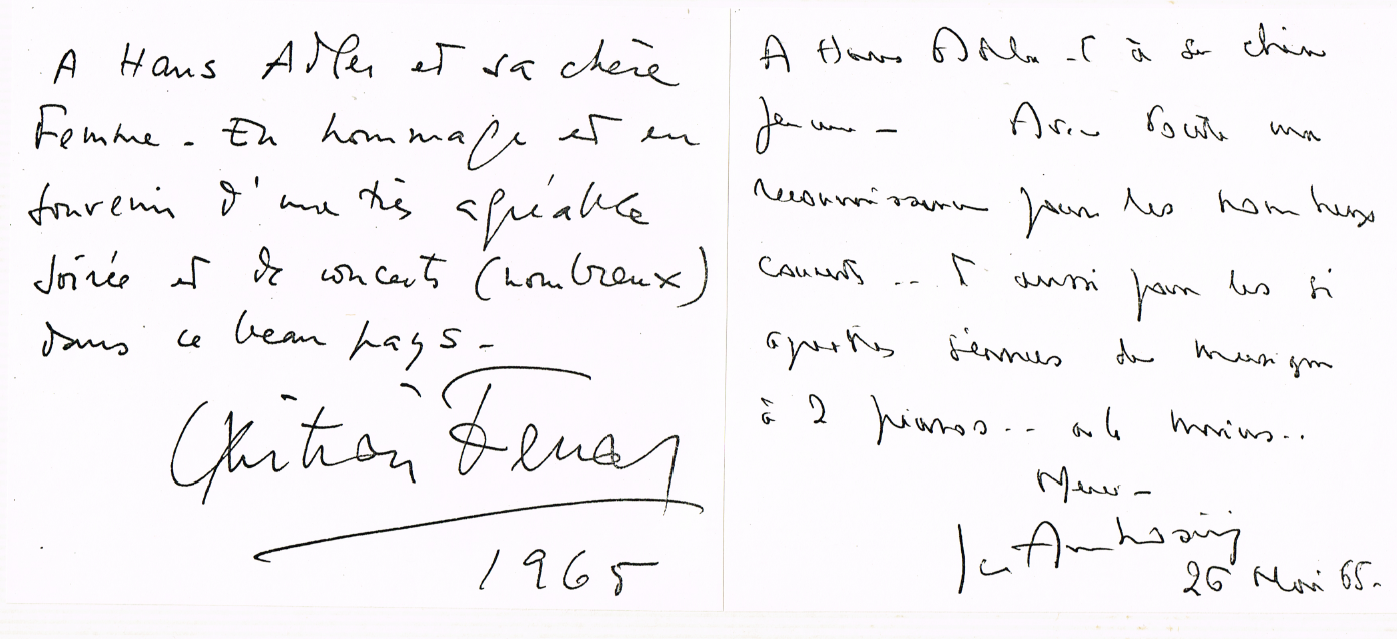 A Hans Adler et sa chère
Femme. En hommage et en
souvenir d'une très agréable
soirée et de concerts (nombreux)
dans ce beau pays.
Christian Ferras
1965
A Hans Adler et à sa chère
femme - Avec toute ma
reconnaissance pour les nombreux
concerts... et aussi pour les si
séances de musique
à 2 pianos...
Merci -
26 Mai 65.